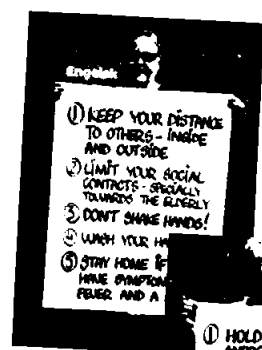 Engelsk
① KEEP YOUR DISTANCE
TO OTHERS - INSIDE
AND OUTSIDE
② LIMIT YOUR SOCIAL
CONTACTS - SPECIALLY
TOWARDS THE ELDERLY
③ DON'T SHAKE HANDS!
④ WASH YOUR HA
⑤ STAY HOME IF
HAVE SYMPTOM
FEVER AND A
① HOLD